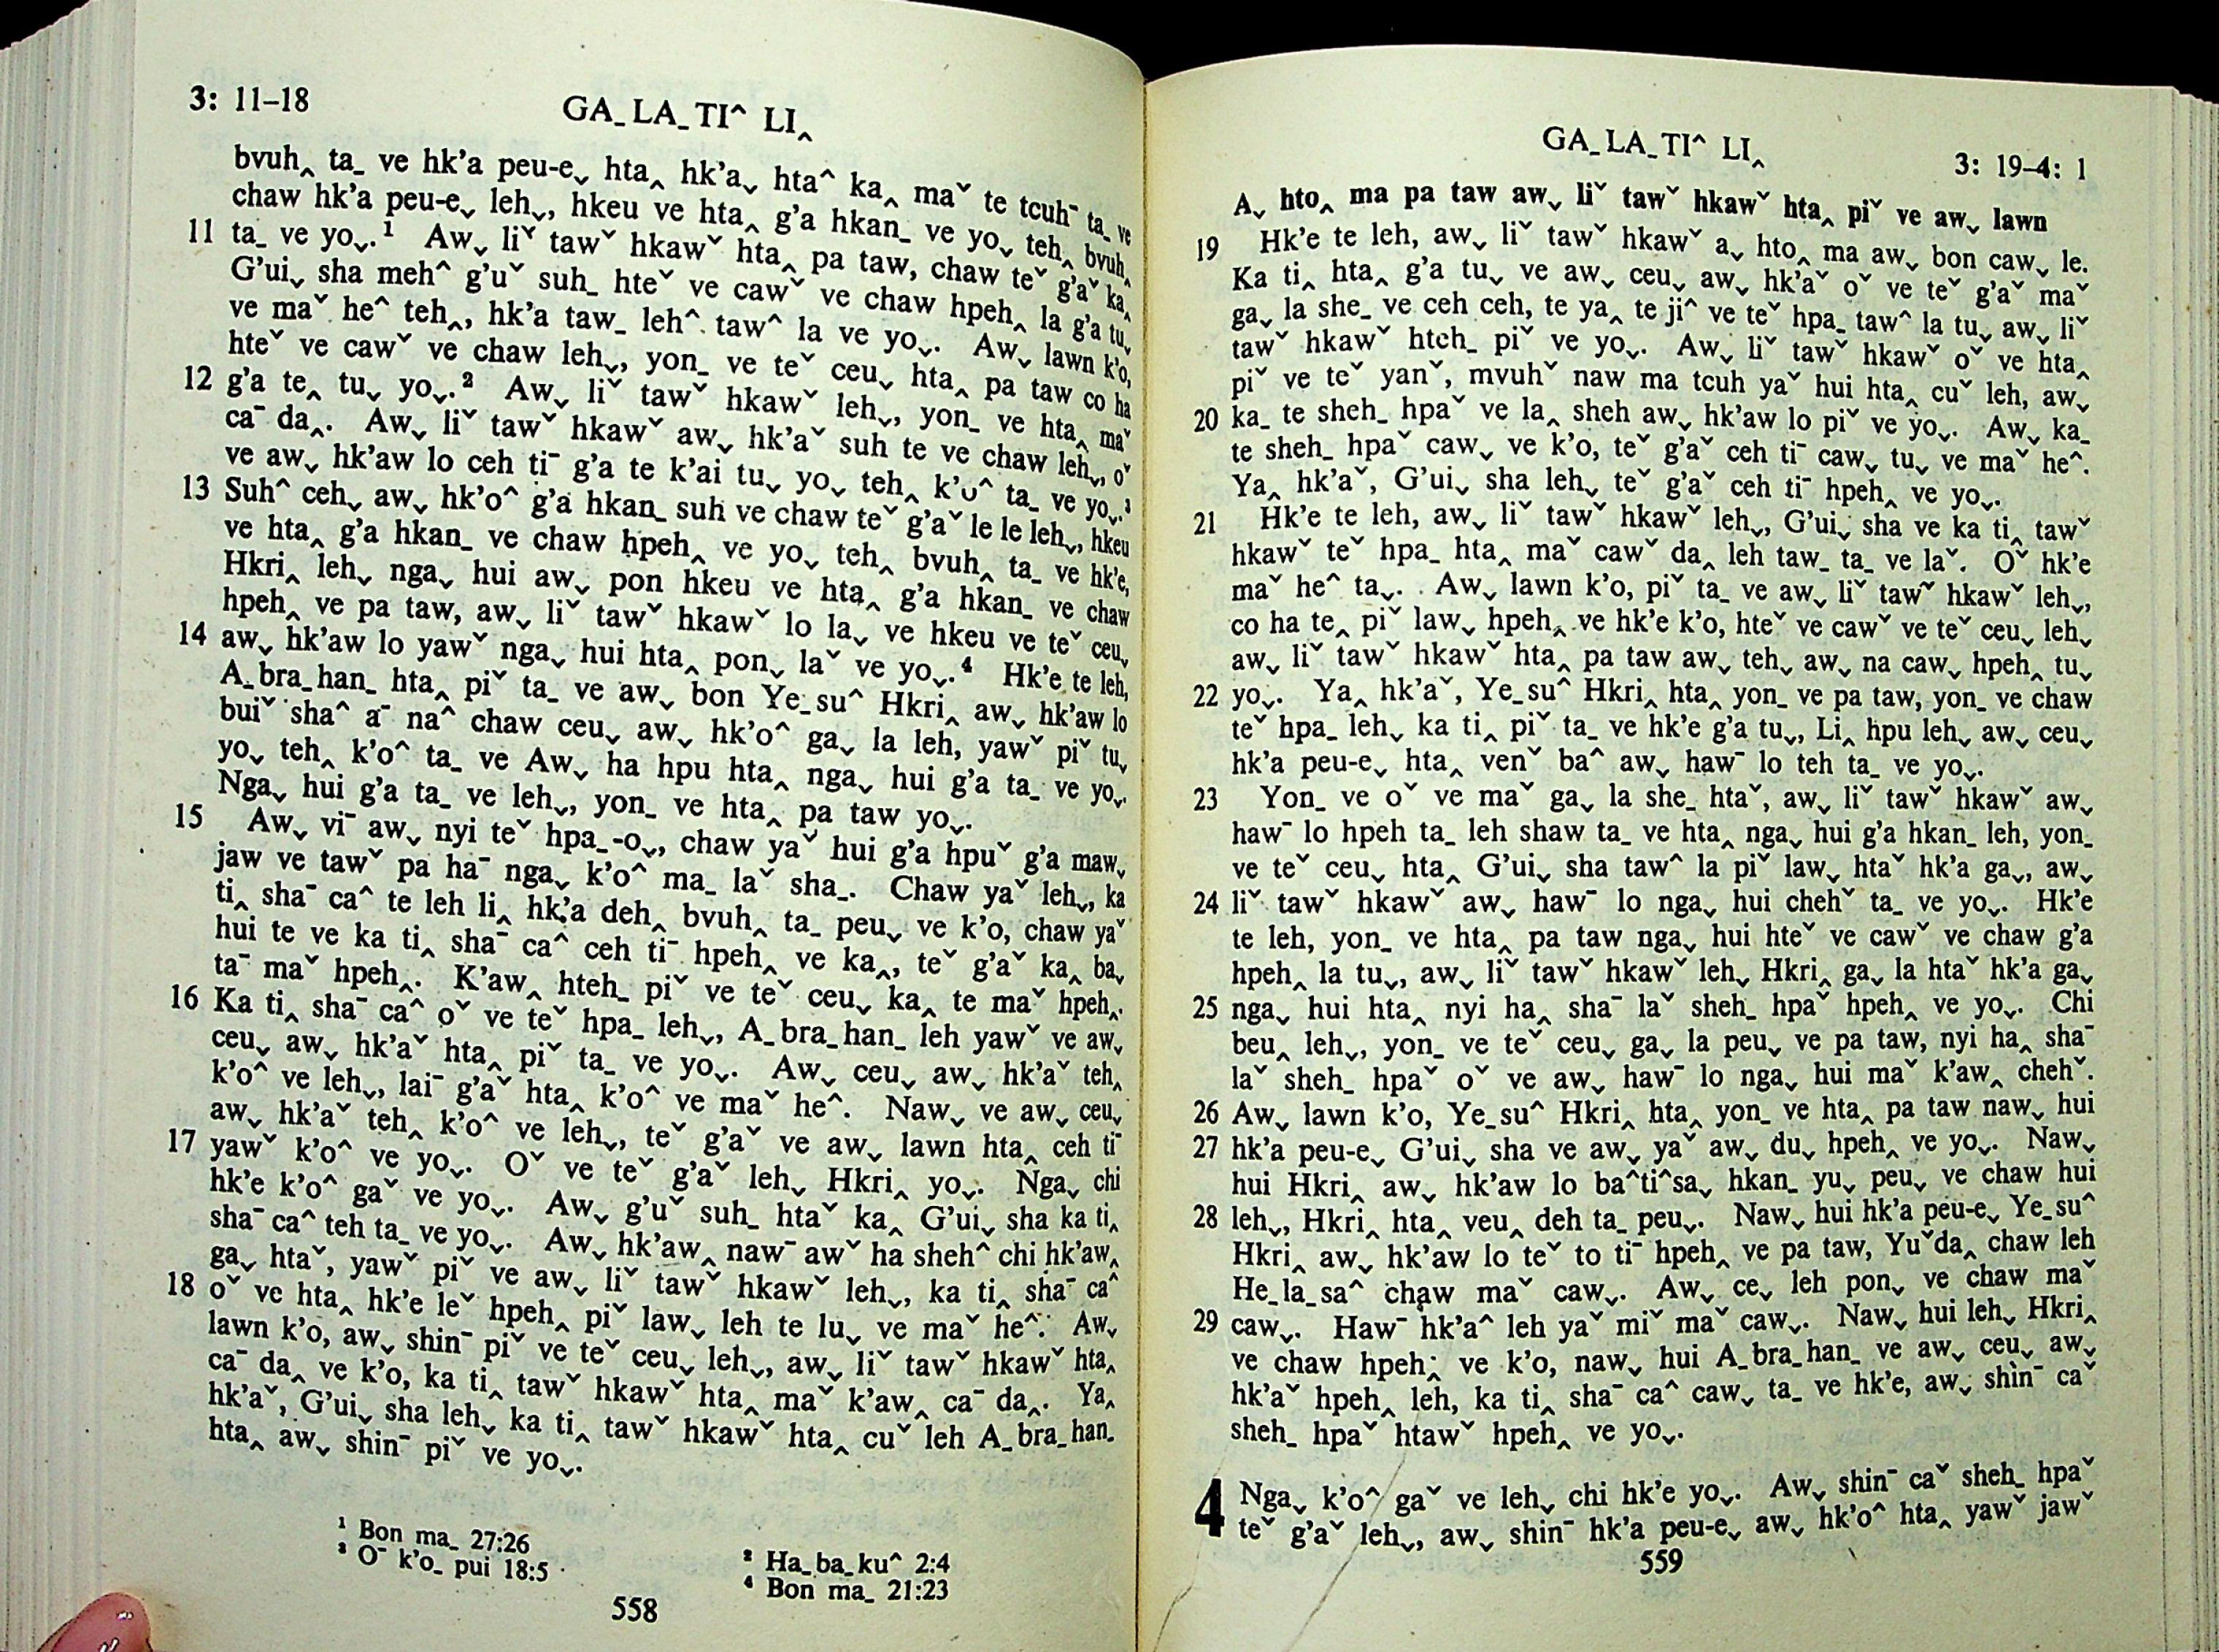 3: 11–18
GA_ LA_ TI^ LI‸
bvuh‸ ta_ ve hk’a peu-e˯ hta‸ hk’a˯ hta^ ka‸ maˇ te tcuh¯ ta_ ve
chaw hk’a peu-e˯ leh˯, hkeu ve hta‸ g’a hkan_ ve yo˯ teh‸ bvuh‸
11 ta_ ve yo˯.¹ Aw˯ liˇ tawˇ hkawˇ hta‸ pa taw, chaw teˇ g’aˇ ka‸
G’ui˯ sha meh^ g’uˇ suh_ hteˇ ve cawˇ ve chaw hpeh‸ la g’a tu˯
ve maˇ he^ teh‸, hk’a taw_ leh^ taw^ la ve yo˯. Aw˯ lawn k’o,
hteˇ ve cawˇ ve chaw leh˯, yon_ ve teˇ ceu˯ hta‸ pa taw co ha
12 g’a te‸ tu˯ yo˯.² Aw˯ liˇ tawˇ hkawˇ leh˯, yon_ ve hta‸ maˇ
ca¯ da‸. Aw˯ liˇ tawˇ hkawˇ aw˯ hk’aˇ suh te ve chaw leh˯, oˇ
ve aw˯ hk’aw lo ceh ti¯ g’a te k’ai tu˯ yo˯ teh‸ k’o^ ta_ ve yo˯.³
13 Suh^ ceh˯ aw˯ hk’o^ g’a hkan_ suh ve chaw teˇ g’aˇ le le leh˯, hkeu
ve hta‸ g’a hkan_ ve chaw hpeh‸ ve yo˯ teh‸ bvuh‸ ta_ ve hk’e,
Hkri‸ leh˯ nga˯ hui aw˯ pon hkeu ve hta‸ g’a hkan_ ve chaw
hpeh‸ ve pa taw, aw˯ liˇ tawˇ hkawˇ lo la˯ ve hkeu ve teˇ ceu˯
14 aw˯ hk’aw lo yawˇ nga˯ hui hta‸ pon˯ laˇ ve yo˯.⁴ Hk’e te leh,
A_bra_han_ hta‸ piˇ ta_ ve aw˯ bon Ye_su^ Hkri‸ aw˯ hk’aw lo
buiˇ sha^ a¯ na^ chaw ceu˯ aw˯ hk’o^ ga˯ la leh, yawˇ piˇ tu˯
yo˯ teh‸ k’o^ ta_ ve Aw˯ ha hpu hta‸ nga˯ hui g’a ta_ ve yo˯.
Nga˯ hui g’a ta_ ve leh˯, yon_ ve hta‸ pa taw yo˯.
15 Aw˯ vi¯ aw˯ nyi teˇ hpa_-o˯, chaw yaˇ hui g’a hpuˇ g’a maw˯
jaw ve tawˇ pa ha¯ nga˯ k’o^ ma_ laˇ sha_. Chaw yaˇ leh˯, ka
ti‸ sha¯ ca^ te leh li‸ hk’a deh‸ bvuh‸ ta_ peu˯ ve k’o, chaw yaˇ
hui te ve ka ti‸ sha¯ ca^ ceh ti¯ hpeh‸ ve ka‸, teˇ g’aˇ ka‸ ba˯
ta¯ maˇ hpeh‸. K’aw‸ hteh_ piˇ ve teˇ ceu˯ ka‸ te maˇ hpeh‸.
16 Ka ti‸ sha¯ ca^ oˇ ve teˇ hpa_ leh˯, A_bra_han_ leh yawˇ ve aw˯
ceu˯ aw˯ hk’aˇ hta‸ piˇ ta_ ve yo˯. Aw˯ ceu˯ aw˯ hk’aˇ teh‸
k’o^ ve leh˯, lai¯ g’aˇ hta‸ k’o^ ve maˇ he^. Naw˯ ve aw˯ ceu˯
aw˯ hk’aˇ teh‸ k’o^ ve leh˯, teˇ g’aˇ ve aw˯ lawn hta‸ ceh ti¯
17 yawˇ k’o^ ve yo˯. Oˇ ve teˇ g’aˇ leh˯ Hkri‸ yo˯. Nga˯ chi
hk’e k’o^ gaˇ ve yo˯. Aw˯ g’uˇ suh_ htaˇ ka‸ G’ui˯ sha ka ti‸
sha¯ ca^ teh ta_ ve yo˯. Aw˯ hk’aw‸ naw¯ awˇ ha sheh^ chi hk’aw‸
ga˯ htaˇ, yawˇ piˇ ve aw˯ liˇ tawˇ hkawˇ leh˯, ka ti‸ sha¯ ca^
18 oˇ ve hta‸ hk’e leˇ hpeh‸ piˇ law˯ leh te lu˯ ve maˇ he^. Aw˯
lawn k’o, aw˯ shin¯ piˇ ve teˇ ceu˯ leh˯, aw˯ liˇ tawˇ hkawˇ hta‸
ca¯ da‸ ve k’o, ka ti‸ tawˇ hkawˇ hta‸ maˇ k’aw‸ ca¯ da‸. Ya‸
hk’aˇ, G’ui˯ sha leh˯ ka ti‸ tawˇ hkawˇ hta‸ cuˇ leh A_bra_han_
hta‸ aw˯ shin¯ piˇ ve yo˯.
¹ Bon ma_ 27:26
³ O¯ k’o_ pui 18:5
² Ha_ba_ku^ 2:4
⁴ Bon ma_ 21:23
558
GA_ LA_ TI^ LI‸
3: 19–4: 1
A˯ hto‸ ma pa taw aw˯ liˇ tawˇ hkawˇ hta‸ piˇ ve aw˯ lawn
19 Hk’e te leh, aw˯ liˇ tawˇ hkawˇ a˯ hto‸ ma aw˯ bon caw˯ le.
Ka ti‸ hta‸ g’a tu˯ ve aw˯ ceu˯ aw˯ hk’aˇ oˇ ve teˇ g’aˇ maˇ
ga˯ la she_ ve ceh ceh, te ya‸ te ji^ ve teˇ hpa_ taw^ la tu˯ aw˯ liˇ
tawˇ hkawˇ hteh_ piˇ ve yo˯. Aw˯ liˇ tawˇ hkawˇ oˇ ve hta‸
piˇ ve teˇ yanˇ, mvuhˇ naw ma tcuh yaˇ hui hta‸ cuˇ leh, aw˯
20 ka_ te sheh_ hpaˇ ve la‸ sheh aw˯ hk’aw lo piˇ ve yo˯. Aw˯ ka_
te sheh_ hpaˇ caw˯ ve k’o, teˇ g’aˇ ceh ti¯ caw˯ tu˯ ve maˇ he^.
Ya‸ hk’aˇ, G’ui˯ sha leh˯ teˇ g’aˇ ceh ti¯ hpeh‸ ve yo˯.
21 Hk’e te leh, aw˯ liˇ tawˇ hkawˇ leh˯, G’ui˯ sha ve ka ti‸ tawˇ
hkawˇ teˇ hpa_ hta‸ maˇ cawˇ da‸ leh taw_ ta_ ve laˇ. Oˇ hk’e
maˇ he^ ta˯. Aw˯ lawn k’o, piˇ ta_ ve aw˯ liˇ tawˇ hkawˇ leh˯,
co ha te‸ piˇ law˯ hpeh‸ ve hk’e k’o, hteˇ ve cawˇ ve teˇ ceu˯ leh˯
aw˯ liˇ tawˇ hkawˇ hta‸ pa taw aw˯ teh˯ aw˯ na caw˯ hpeh‸ tu˯
22 yo˯. Ya‸ hk’aˇ, Ye_su^ Hkri‸ hta‸ yon_ ve pa taw, yon_ ve chaw
teˇ hpa_ leh˯ ka ti‸ piˇ ta_ ve hk’e g’a tu˯, Li‸ hpu leh˯ aw˯ ceu˯
hk’a peu-e˯ hta‸ venˇ ba^ aw˯ haw¯ lo teh ta_ ve yo˯.
23 Yon_ ve oˇ ve maˇ ga˯ la she_ htaˇ, aw˯ liˇ tawˇ hkawˇ aw˯
haw¯ lo hpeh ta_ leh shaw ta_ ve hta‸ nga˯ hui g’a hkan_ leh, yon_
ve teˇ ceu˯ hta‸ G’ui˯ sha taw^ la piˇ law˯ htaˇ hk’a ga˯, aw˯
24 liˇ tawˇ hkawˇ aw˯ haw¯ lo nga˯ hui chehˇ ta_ ve yo˯. Hk’e
te leh, yon_ ve hta‸ pa taw nga˯ hui hteˇ ve cawˇ ve chaw g’a
hpeh‸ la tu˯, aw˯ liˇ tawˇ hkawˇ leh˯ Hkri‸ ga˯ la htaˇ hk’a ga˯
25 nga˯ hui hta‸ nyi ha‸ sha¯ laˇ sheh_ hpaˇ hpeh‸ ve yo˯. Chi
beu‸ leh˯, yon_ ve teˇ ceu˯ ga˯ la peu˯ ve pa taw, nyi ha‸ sha¯
laˇ sheh_ hpaˇ oˇ ve aw˯ haw¯ lo nga˯ hui maˇ k’aw‸ chehˇ.
26 Aw˯ lawn k’o, Ye_su^ Hkri‸ hta‸ yon_ ve hta‸ pa taw naw˯ hui
27 hk’a peu-e˯ G’ui˯ sha ve aw˯ yaˇ aw˯ du˯ hpeh‸ ve yo˯. Naw˯
hui Hkri‸ aw˯ hk’aw lo ba^ti^sa˯ hkan_ yu˯ peu˯ ve chaw hui
28 leh˯, Hkri‸ hta‸ veu‸ deh ta_ peu˯. Naw˯ hui hk’a peu-e˯ Ye_su^
Hkri‸ aw˯ hk’aw lo teˇ to ti¯ hpeh‸ ve pa taw, Yuˇda‸ chaw leh
He_la_sa^ chaw maˇ caw˯. Aw˯ ce˯ leh pon˯ ve chaw maˇ
29 caw˯. Haw¯ hk’a^ leh yaˇ miˇ maˇ caw˯. Naw˯ hui leh˯ Hkri‸
ve chaw hpeh‸ ve k’o, naw˯ hui A_bra_han_ ve aw˯ ceu˯ aw˯
hk’aˇ hpeh‸ leh, ka ti‸ sha¯ ca^ caw˯ ta_ ve hk’e, aw˯ shin¯ caˇ
sheh_ hpaˇ htawˇ hpeh‸ ve yo˯.
4 Nga˯ k’o^ gaˇ ve leh˯ chi hk’e yo˯. Aw˯ shin¯ caˇ sheh_ hpaˇ
teˇ g’aˇ leh˯, aw˯ shin¯ hk’a peu-e˯ aw˯ hk’o^ hta‸ yawˇ jawˇ
559